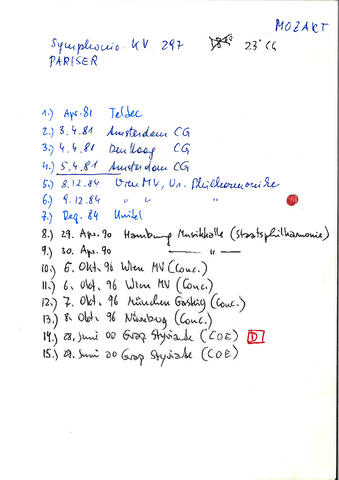 MOZART
Symphonie KV 297 23' CG
PARISER
1.) Apr. 81 Teldec
2.) 3.4.81 Amsterdam CG
3.) 4.4.81 Den Haag CG
4.) 5.4.81 Amsterdam CG
5.) 8.12.84 Wien MV, Wr. Philharmoniker
6.) 9.12.84 " " "
7.) Dez. 84 Unitel
8.) 29. Apr. 90 Hamburg Musikhalle (Staatsphilharmonie)
9.) 30. Apr. 90 — " —
10.) 5. Okt. 96 Wien MV (Conc.)
11.) 6. Okt. 96 Wien MV (Conc.)
12.) 7. Okt. 96 München Gasteig (Conc.)
13.) 8. Okt. 96 Nürnberg (Conc.)
14.) 28. Juni 00 Graz Styriarte (COE) D
15.) 29. Juni 00 Graz Styriarte (COE)